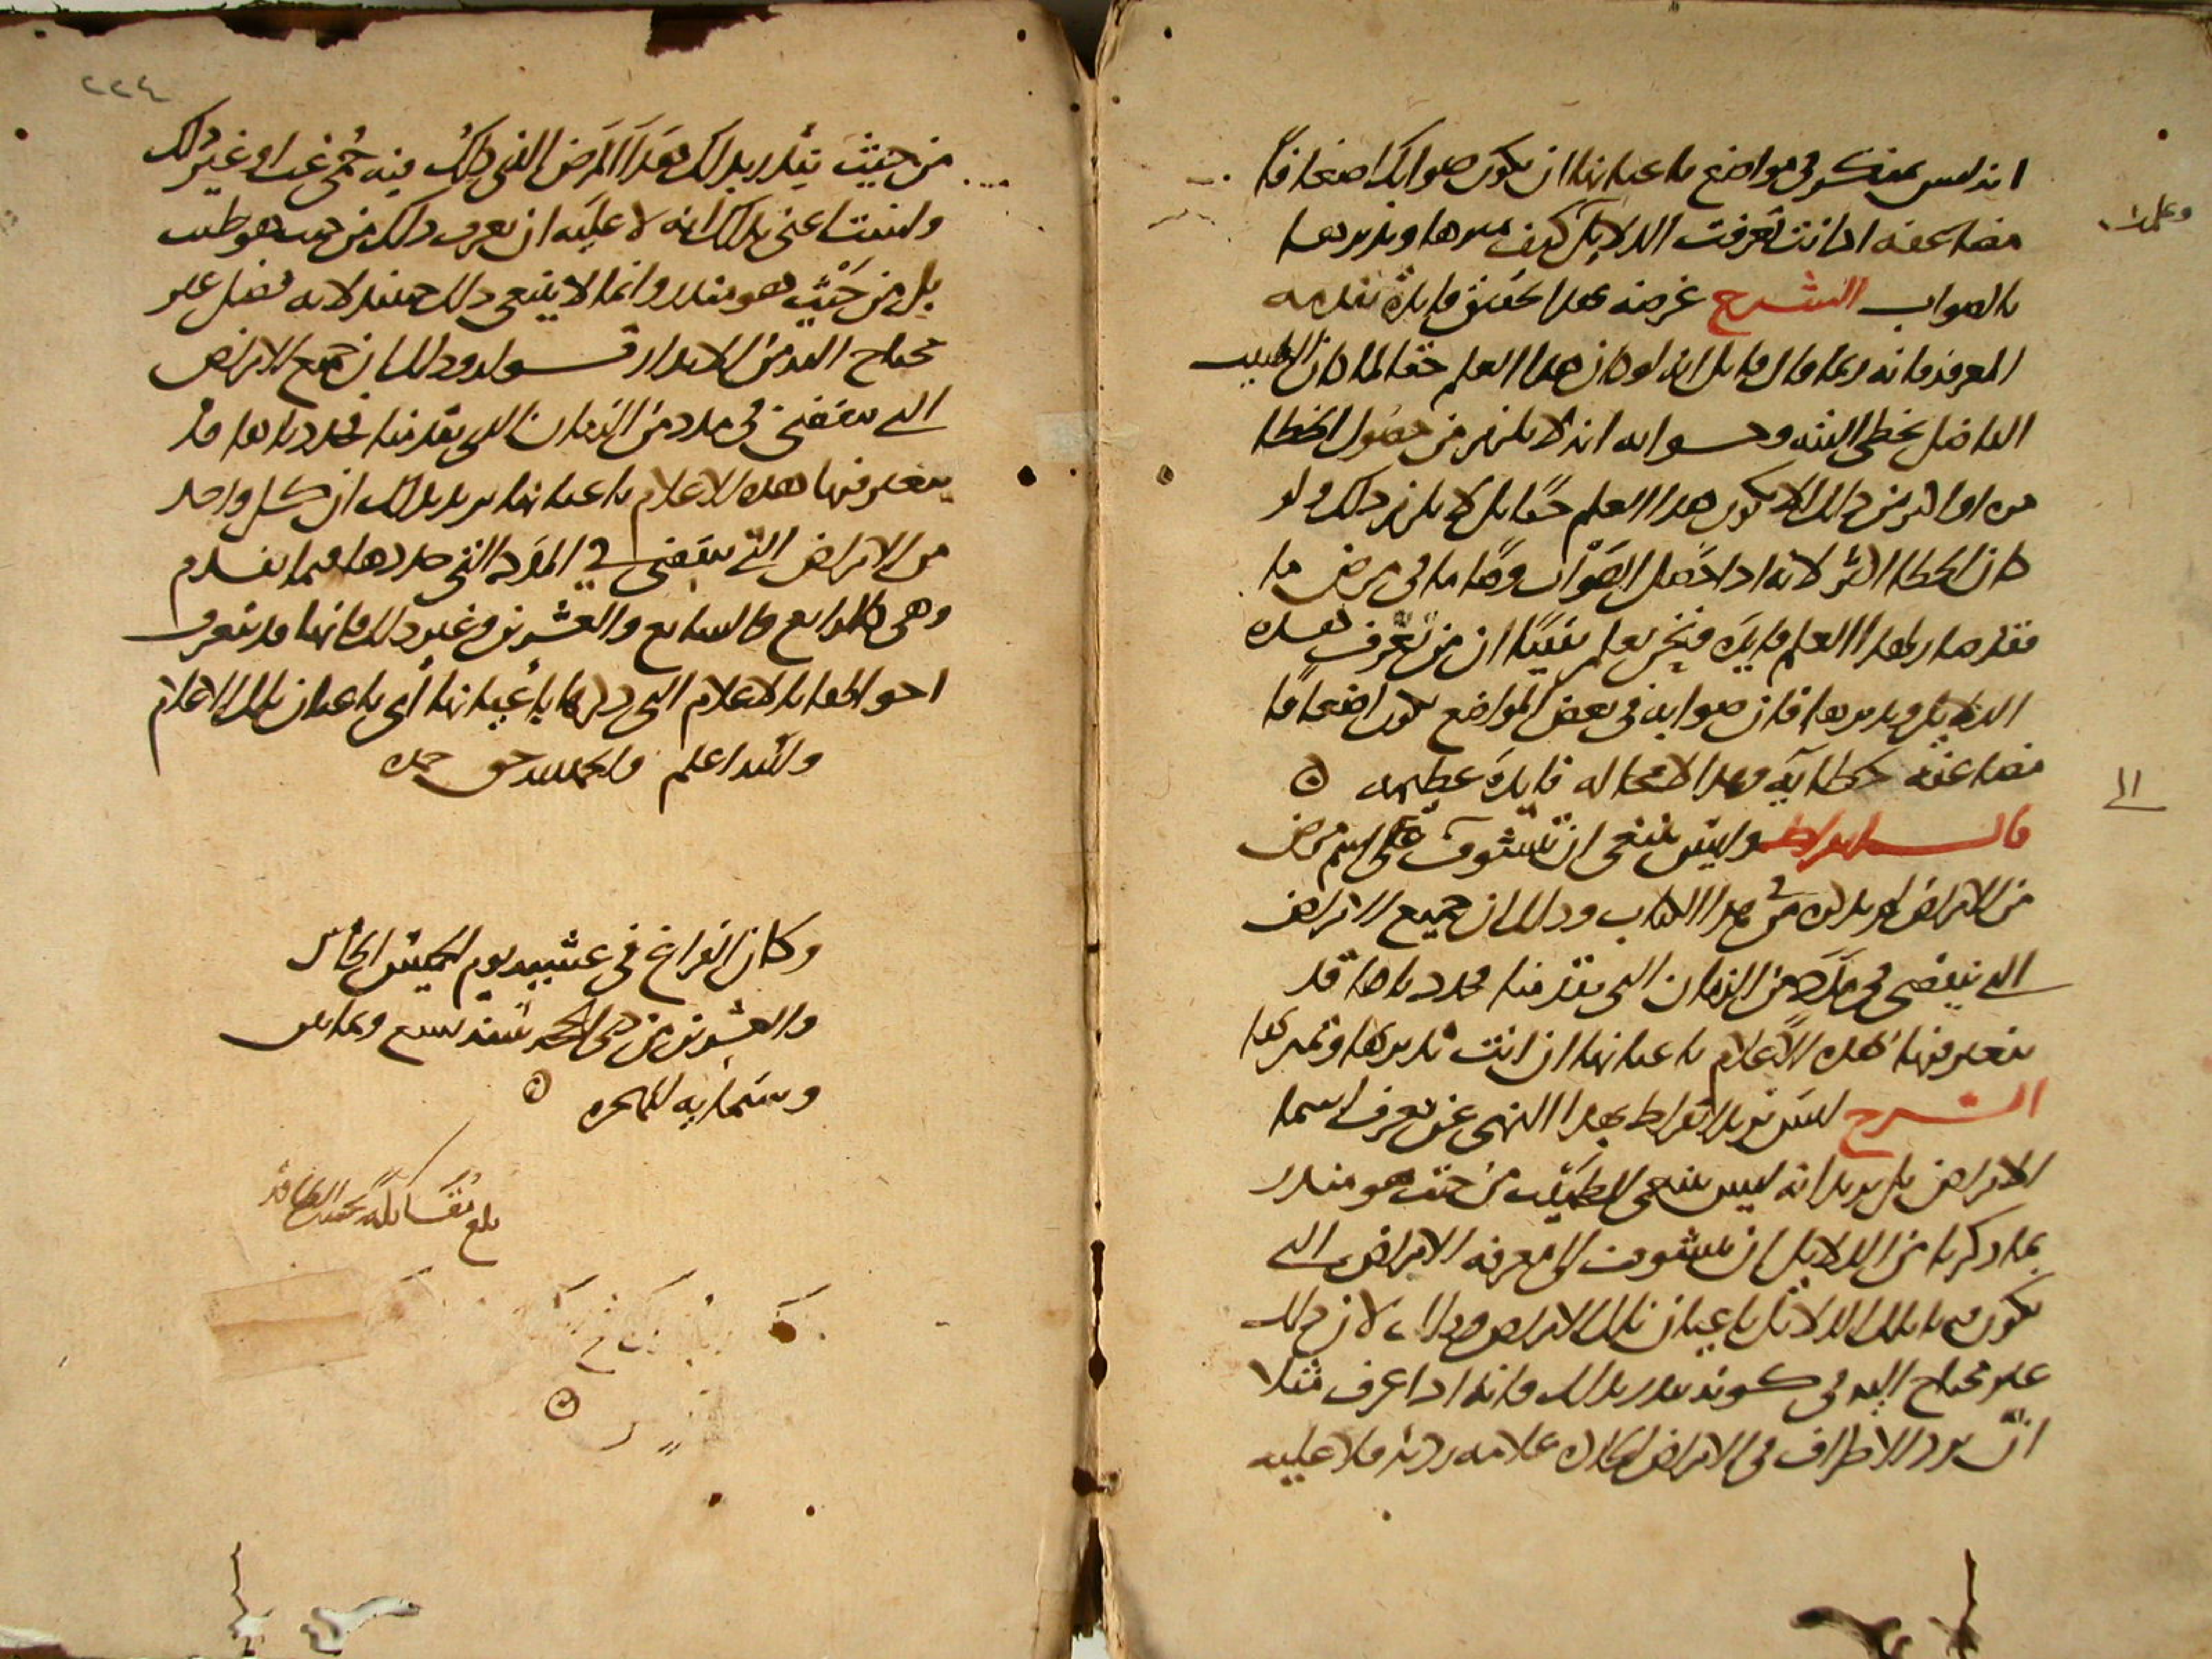 انه ليس بمنكر في مواضع باعيانها ان يكون صوابك اضعافا
مضاعفه اذا انت تعرفت الدلايل كيف تميزها وتدبرها
بالصواب الشرح غرضه بهذا تحقيق فايدة تقدمه
المعرفه فانه ربما قال قايل انه لو كان هذا العلم حقا لما كان الطبيب
الفاضل يخطى البته وجوابه انه لا يلزم من حصول الخطا
مره او اكثر من ذلك الا يكون هذا العلم حقا بل لا يلزم ذلك ولو
كان الخطا اكثر لانه اذا حصل الصواب وقتا ما في مرض ما
فقد صار لهذا العلم فايدة ونحن نعلم يقينا ان من تعرف هذه
الدلايل وتدبرها فان صوابه في بعض المواضع يكون اضعافا
مضاعفه لخطايه وهذا لا محاله فايدة عظيمه
قال ابقراط وليس ينبغي ان تتشوق الى اسم مرض
من الامراض لم نذكره في هذا الكتاب وذلك ان جميع الامراض
التي تنقضي في مدد من الزمان التي تقدمنا فحددناها قد
تتعرفها بهذه الاعلام باعيانها ان انت تدبرتها وتميزتها
الشرح ليس يريد ابقراط بهذا النهي عن تعرف اسما
الامراض بل يريد انه ليس ينبغي للطبيب من حيث هو منذر
بما ذكرنا من الدلايل ان يتشوق الى معرفه الامراض التي
تكون فيها تلك الدلايل باعيان تلك الامراض وذلك لان ذلك
غير محتاج اليه في كونه ينذر بذلك فانه اذا عرف مثلا
ان برد الاطراف في الامراض الحاده علامه رديه فلا عليه
وعلى
الى
٢٢٤
من حيث ينذر بذلك هذا المرض الذي ذلك فيه حمى غب او غير ذلك
ولست اعني بذلك انه لا عليه ان يعرف ذلك من حيث هو طبيب
بل من حيث هو منذر وانما لا ينبغي ذلك حينئذ لانه فضل غير
محتاج اليه من الانذار قوله وذلك ان جميع الامراض
التي تنقضي في مدد من الزمان التي تقدمنا فحددناها قد
يتعرفها بهذه الاعلام باعيانها يريد بذلك ان كل واحد
من الامراض التي تنقضي في المدد التي حددها فيما تقدم
وهي كالرابع والسابع والعشرين وغير ذلك فانها قد تتعرف
احوالها بالاعلام التي ذكرها باعيانها اي باعيان تلك الاعلام
والله اعلم والحمد لله حق حمده
وكان الفراغ في عشيه يوم الخميس الخامس
والعشرين من ذي الحجه سنه تسع وثمانين
وستمايه للهجره
بلغ مقابله بحسب الطاقه